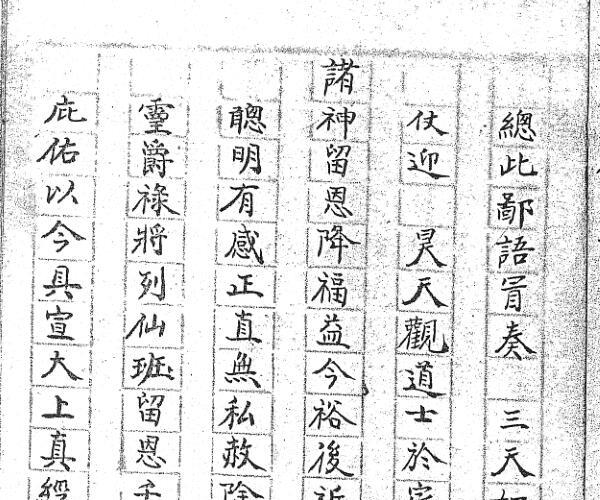 總此鄙語冒奏　三天
仗迎　昊天觀道士於
諸神留恩降福益今裕後祈
聰明有感正直無私赦除
靈爵祿將列仙班留恩
庇佑以今具宣太上真